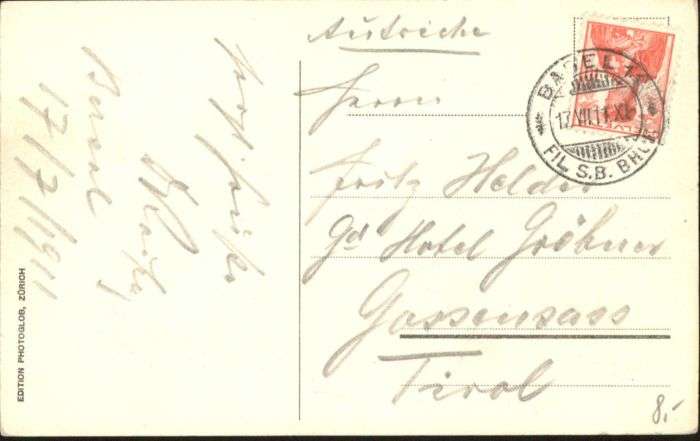 Basel
17/7/1911
Autriche
Herrn
Fritz Helder
Gd Hotel Gröbner
Gossensass
Tirol
BASEL 1
17.VII.11.XI
FIL. S.B. BHOF
EDITION PHOTOGLOB, ZÜRICH
8.-